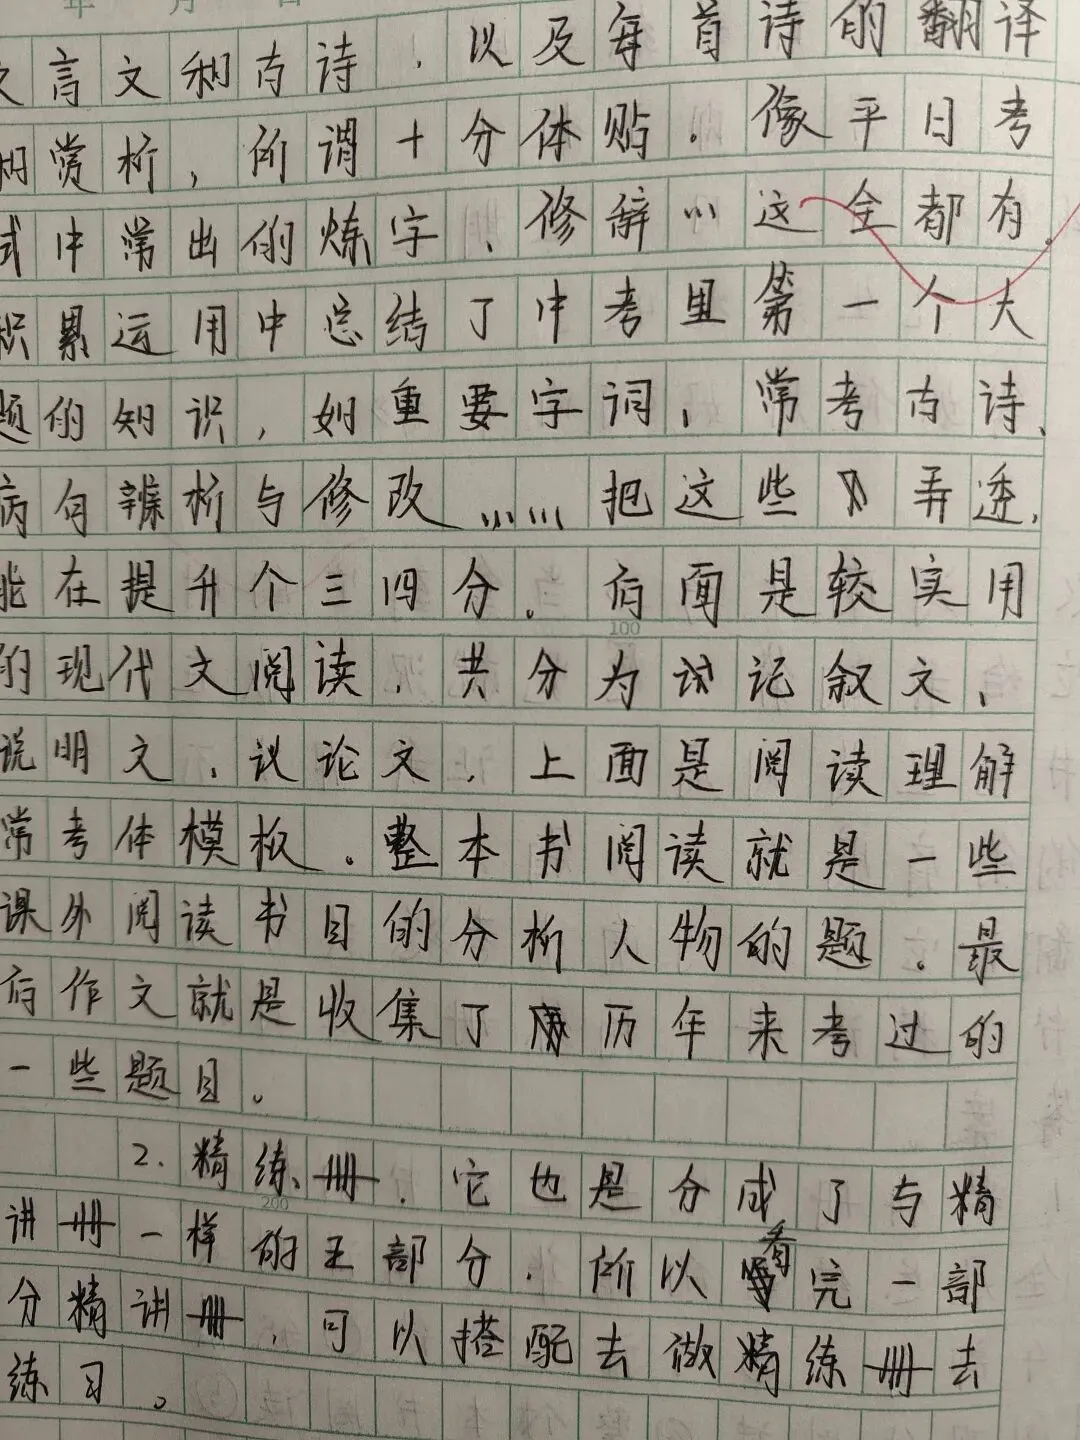 年 月 日
文言文和古诗，以及每首诗的翻译
和赏析，所谓十分体贴。像平日考
试中常出的炼字、修辞……这全都有。
积累运用中总结了中考里第一个大
题的知识，如重要字词，常考古诗、
病句辨析与修改……把这些弄透，
能在提升个三四分。后面是较实用
的现代文阅读，共分为记叙文、
说明文，议论文，上面是阅读理解
常考体模板。整本书阅读就是一些
课外阅读书目的分析人物的题。最
后作文就是收集了历年来考过的
一些题目。
2.精练册，它也是分成了与精
讲册一样的五部分，所以看完一部
分精讲册，可以搭配去做精练册去
练习。
100
200